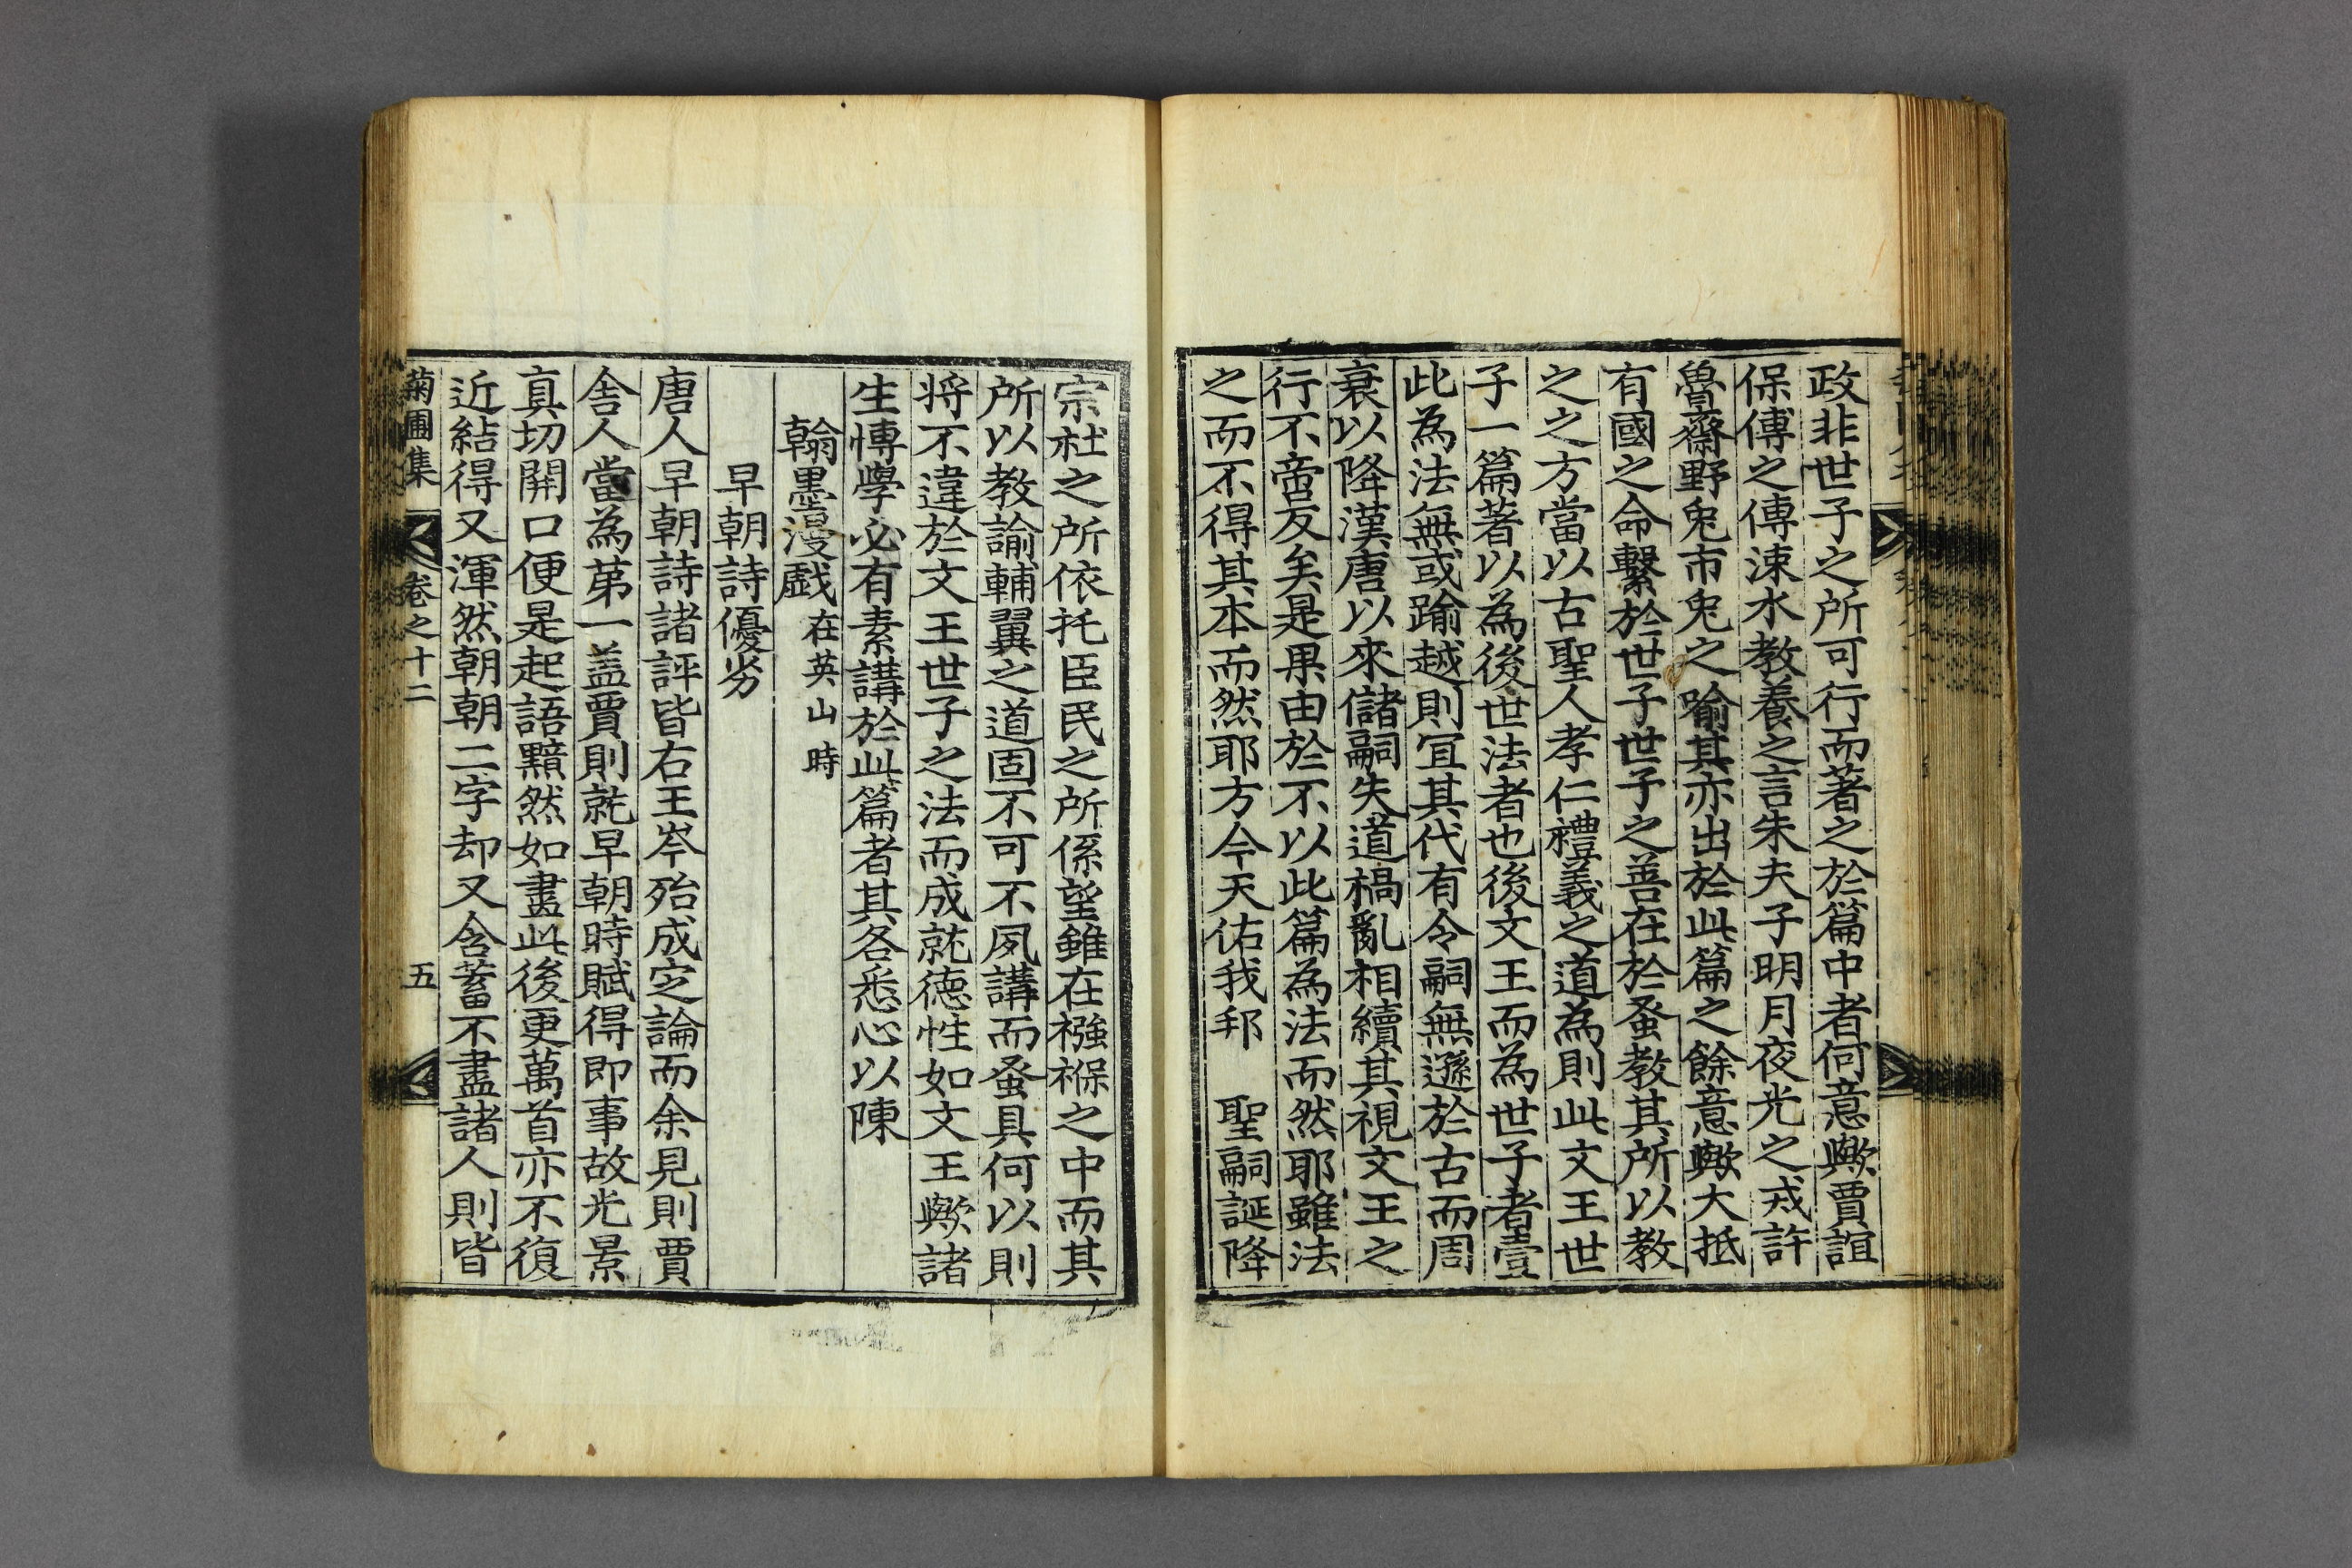 政非世子之所可行而著之於篇中者何意歟賈誼
保傅之傳涑水教養之言朱夫子明月夜光之戒許
魯齋野兔市兔之喻其亦出於此篇之餘意歟大抵
有國之命繫於世子世子之善在於蚤教其所以教
之之方當以古聖人孝仁禮義之道為則此文王世
子一篇著以為後世法者也後文王而為世子者壹
此為法無或踰越則冝其代有令嗣無遜於古而周
衰以降漢唐以來儲嗣失道禍亂相續其視文王之
行不啻反矣是果由於不以此篇為法而然耶雖法
之而不得其本而然耶方今天佑我邦　聖嗣誕降
宗社之所依托臣民之所係望雖在襁褓之中而其
所以教諭輔翼之道固不可不夙講而蚤具何以則
将不違於文王世子之法而成就徳性如文王歟諸
生博學必有素講於此篇者其各悉心以陳
翰墨漫戯在英山時
早朝詩優劣
唐人早朝詩諸評皆右王岑殆成定論而余見則賈
舍人當為苐一盖賈則就早朝時賦得即事故光景
真切開口便是起語黯然如畫此後更萬首亦不復
近結得又渾然朝朝二字却又含蓄不盡諸人則皆
菊圃集　卷之十二　五